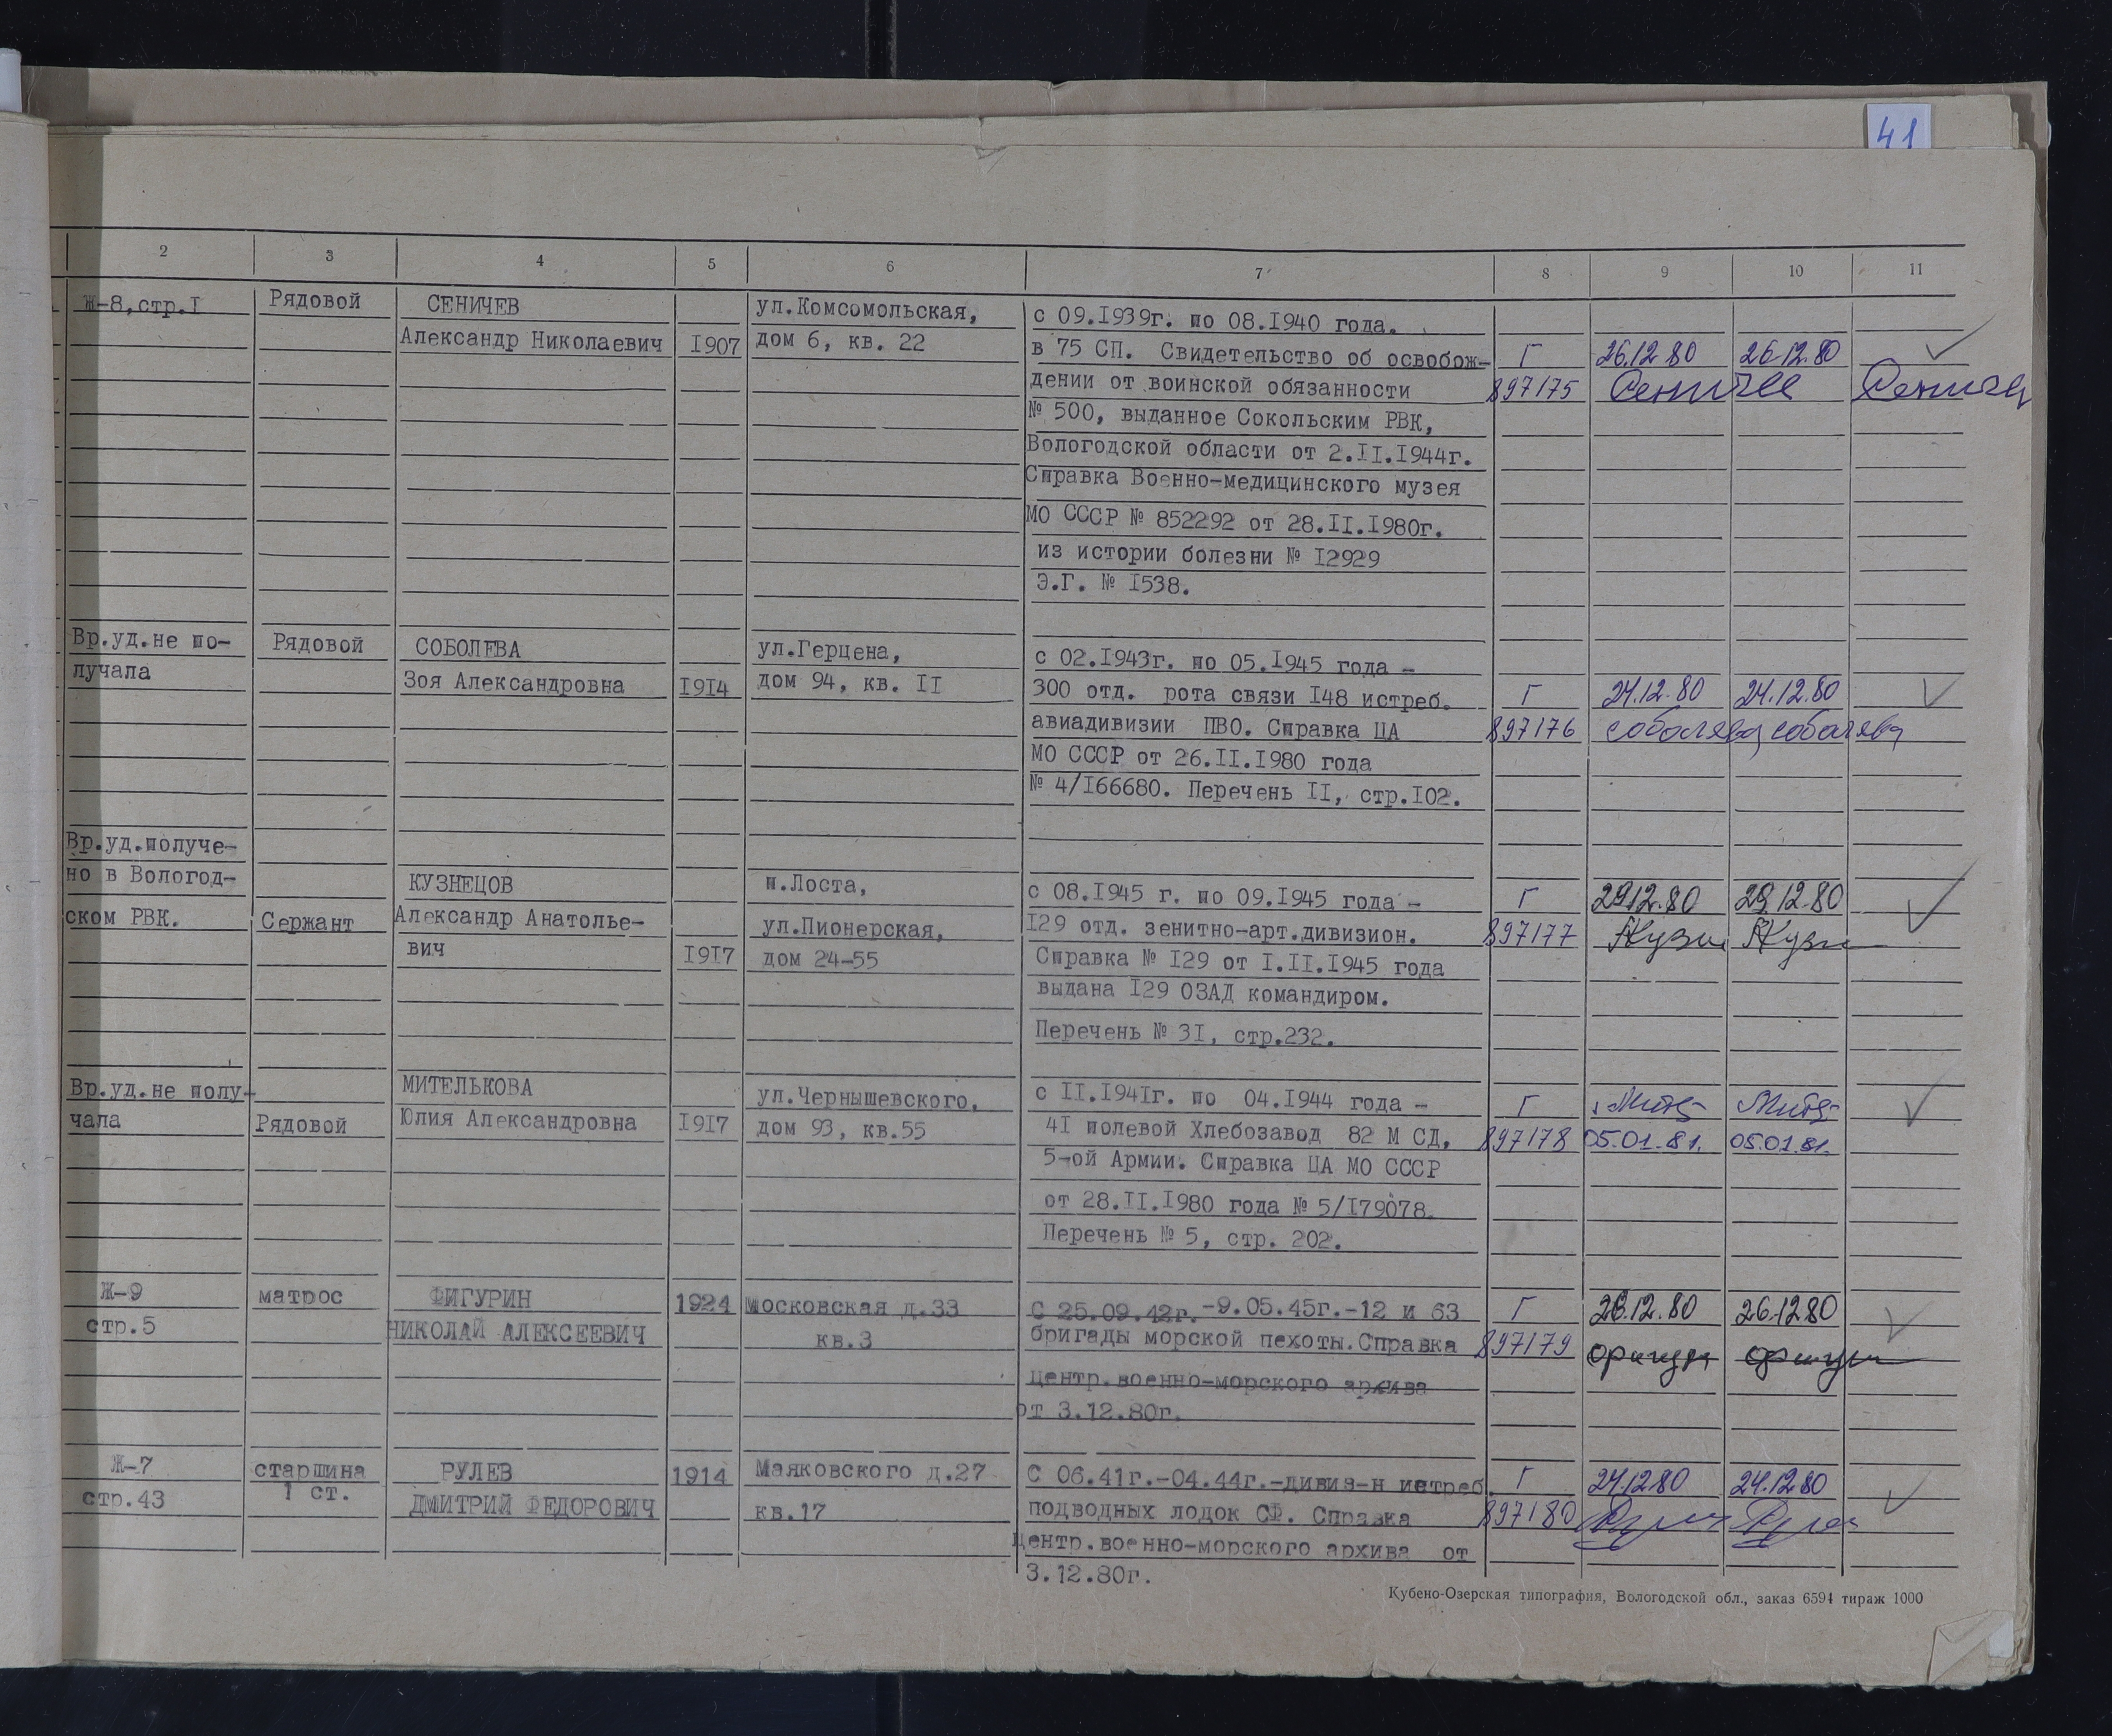 41
2 3 4 5 6 7 8 9 10 11
Ж-8,стр.I Рядовой СЕНИЧЕВ ул.Комсомольская, с 09.I939г. по 08.I940 года.
Александр Николаевич I907 дом 6, кв. 22 в 75 СП. Свидетельство об освобож- Г 26.12.80 26.12.80
дении от воинской обязанности 897175 Сеничев Сеничев
№ 500, выданное Сокольским РВК,
Вологодской области от 2.II.I944г.
Справка Военно-медицинского музея
МО СССР № 852292 от 28.II.I980г.
из истории болезни № I2929
Э.Г. № I538.
Вр.уд.не по- Рядовой СОБОЛЕВА ул.Герцена, с 02.I943г. по 05.I945 года -
лучала Зоя Александровна I9I4 дом 94, кв. II 300 отд. рота связи I48 истреб. Г 24.12.80 24.12.80
авиадивизии ПВО. Справка ЦА 897176 соболева соболева
МО СССР от 26.II.I980 года
№ 4/I66680. Перечень II, стр.I02.
Вр.уд.получе-
но в Вологод- КУЗНЕЦОВ п.Лоста, с 08.I945 г. по 09.I945 года - Г 29.12.80 29.12.80
ском РВК. Сержант Александр Анатолье- ул.Пионерская, I29 отд. зенитно-арт.дивизион. 897177
вич I9I7 дом 24-55 Справка № I29 от I.II.I945 года
выдана I29 ОЗАД командиром.
Перечень № 3I, стр.232.
Вр.уд.не полу- МИТЕЛЬКОВА ул.Чернышевского, с II.I94Iг. по 04.I944 года - Г
чала Рядовой Юлия Александровна I9I7 дом 93, кв.55 4I полевой Хлебозавод 82 М СД, 897178 05.01.81. 05.01.81.
5-ой Армии. Справка ЦА МО СССР
от 28.II.I980 года № 5/I79078.
Перечень № 5, стр. 202.
Ж-9 матрос ФИГУРИН 1924 Московская д.33 С 25.09.42г.-9.05.45г.-12 и 63 Г 26.12.80 26.12.80
стр.5 НИКОЛАЙ АЛЕКСЕЕВИЧ кв.3 бригады морской пехоты.Справка 897179
Центр.военно-морского архива
от 3.12.80г.
Ж-7 старшина РУЛЕВ 1914 Маяковского д.27 С 06.41г.-04.44г.-дивиз-н истреб. Г 24.12.80 24.12.80
стр.43 1 ст. ДМИТРИЙ ФЕДОРОВИЧ кв.17 подводных лодок СФ. Справка 897180
Центр.военно-морского архива от
3.12.80г.
Кубено-Озерская типография, Вологодской обл., заказ 6594 тираж 1000